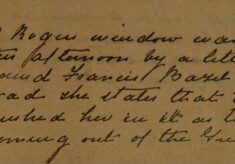 Rogers window was
this afternoon by a litt
named Francis Bazel
and she states that
pushed her in it as t
coming out of the